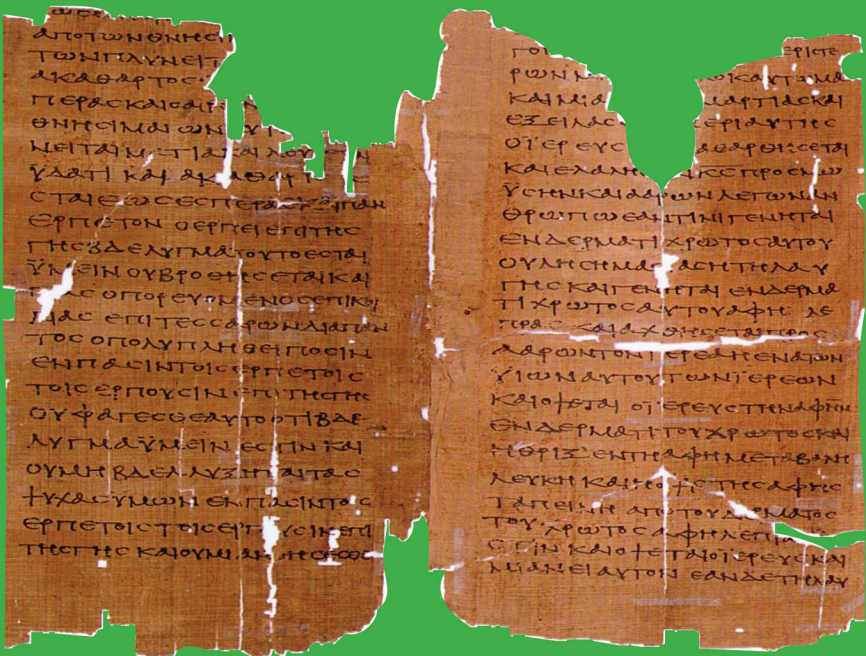 ΑΠΟΤΩΝΘΝΗϹΙ
ΤΩΝΠΛΥΝΕΙΤ
ΑΚΑΘΑΡΤΟϹ
ΠΕΡΑϹΚΑΙΟΑΙΡ
ΘΝΗϹΙΜΑΙΩΝ
ΝΕΙΤΑΙΜΑΤΙΑΚΑΙΛΟΥ
ΫΔΑΤΙ ΚΑΙ ΑΚΑΘΑΡΤΟϹ
ϹΤΑΙΕΩϹΕϹΠΕΡΑϹΚΑΙΠΑΝ
ΕΡΠΕΤΟΝ ΟΕΡΠΕΙΕΠΙΤΗϹ
ΓΗϹΒΔΕΛΥΓΜΑΤΟΥΤΟΕϹΤΑΙ
ΫΜΕΙΝΟΥΒΡΩΘΗϹΕΤΑΙΚΑΙ
ΟΠΟΡΕΥΟΜΕΝΟϹΕΠΙΚΟΙ
ΛΙΑϹ ΕΠΙΤΕϹϹΑΡΩΝΔΙΑΠΑΝ
ΤΟϹΟΠΟΛΥΠΛΗΘΕΙΠΟϹΙΝ
ΕΝΠΑϹΙΝΤΟΙϹΕΡΠΕΤΟΙϹ
ΤΟΙϹΕΡΠΟΥϹΙΝΕΠΙΤΗϹΓΗϹ
ΟΥΦΑΓΕϹΘΕΑΥΤΟΟΤΙΒΔΕ
ΛΥΓΜΑΫΜΕΙΝ ΕϹΤΙΝ ΚΑΙ
ΟΥΜΗ ΒΔΕΛΛΥΞΗΤΑΙΤΑϹ
ΨΥΧΑϹΥΜΩΝ ΕΝΠΑϹΙΝΤΟΙϹ
ΕΡΠΕΤΟΙϹ ΤΟΙϹΕΡΠΟΥϹΙΝΕΠΙ
ΤΗϹΓΗϹ ΚΑΙΟΥΜΙΑΝΘΗϹΕϹΘΕ
ΓΟ ΕΡΙϹΤΕ
ΡΩΝ ΟΚΑΥΤΩΜΑ
ΚΑΙΜΙΑ ΜΑΡΤΙΑϹΚΑΙ
ΕΞΕΙΛΑϹ ΠΕΡΙΑΥΤΗϹ
ΟΪΕΡΕΥϹ ΚΑΘΑΡΘΗϹΕΤΑΙ
ΚΑΙΕΛΑΛΗ ΚϹΠΡΟϹΜΩ
ΫϹΗΝΚΑΙΑΑΡΩΝΛΕΓΩΝΑΝ
ΘΡΩΠΩΕΑΝΤΙΝΙΓΕΝΗΤΑΙ
ΕΝΔΕΡΜΑΤΙΧΡΩΤΟϹΑΥΤΟΥ
ΟΥΛΗϹΗΜΑϹΙΑϹΗΤΗΛΑΥ
ΓΗϹ ΚΑΙΓΕΝΗΤΑΙ ΕΝΔΕΡΜΑ
ΤΙΧΡΩΤΟϹΑΥΤΟΥΑΦΗ ΛΕ
ΠΡΑϹ ΚΑΙΑΧΘΗϹΕΤΑΙΠΡΟϹ
ΑΑΡΩΝΤΟΝΪΕΡΕΑΗΕΝΑΤΩΝ
ΫΙΩΝΑΥΤΟΥΤΩΝΪΕΡΕΩΝ
ΚΑΙΟΨΕΤΑΙ ΟΪΕΡΕΥϹΤΗΝΑΦΗΝ
ΕΝΔΕΡΜΑΤΙΤΟΥΧΡΩΤΟϹΚΑΙ
ΗΘΡΙΞ ΕΝΤΗΑΦΗΜΕΤΑΒΑΛΗ
ΛΕΥΚΗ ΚΑΙΗΟΨΙϹΤΗϹΑΦΗϹ
ΤΑΠΕΙΝΗ ΑΠΟΤΟΥΔΕΡΜΑΤΟϹ
ΤΟΥ ΧΡΩΤΟϹΑΦΗΛΕΠΡΑ
ϹΤΙΝ ΚΑΙΟΨΕΤΑΙΟΪΕΡΕΥϹΚΑΙ
ΜΙΑΝΕΙΑΥΤΟΝ ΕΑΝΔΕΤΗΛΑΥ